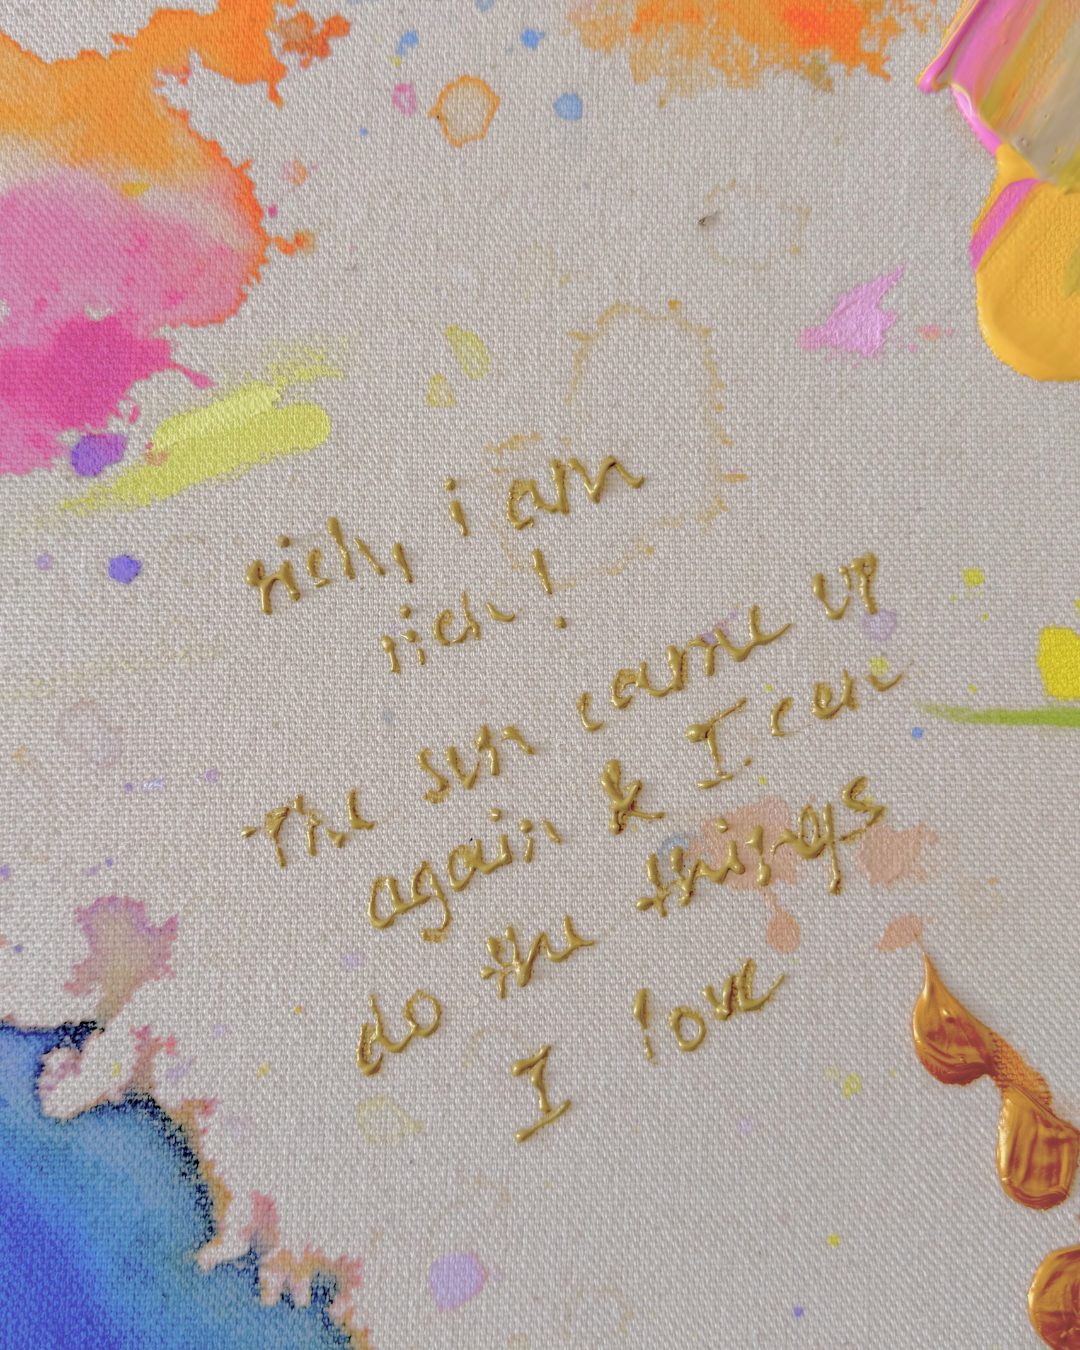 rich, i am
rich!
The sun came up
again & I can
do the things
I love